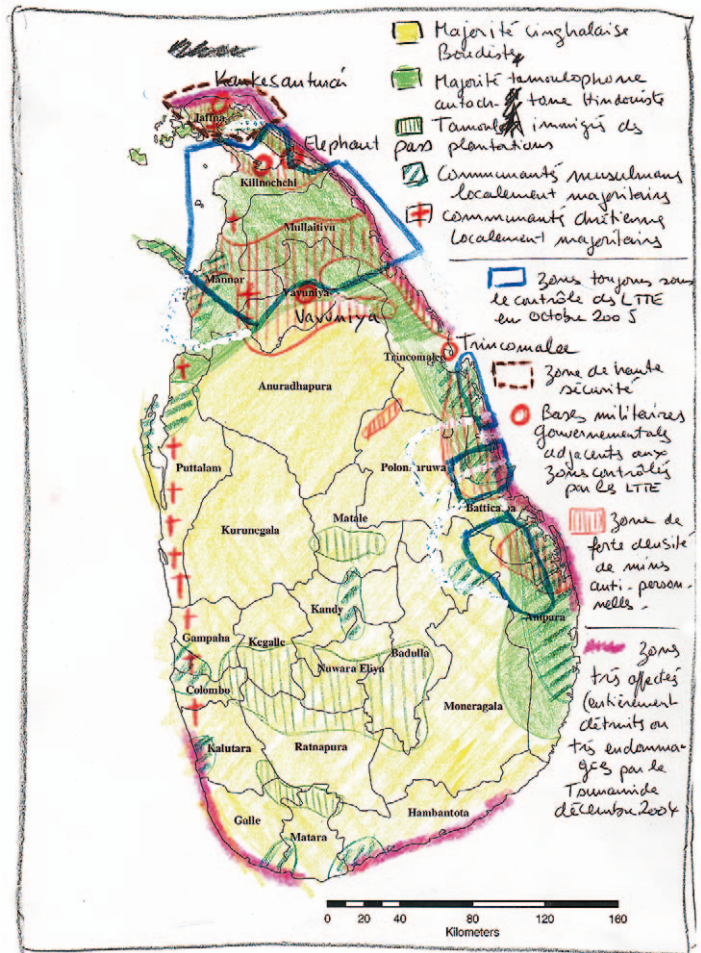 Majorité cinghalaise
Boudiste
Majorité tamoulophone
autoch-tone Hindouiste
Tamouls immigrés des
plantations
Communautés musulmans
localement majoritairs
Communautés chrétienne
localement majoritairs
Zones toujours sous
le contrôle des LTTE
en octobre 2005
Zone de haute
sécurité
Bases militaires
gouvernementals
adjacents aux
zones contrôlés
par les LTTE
Zone de
forte densité
de mines
anti-person-
nelles.
Zones
très affectés
(entièrement
détruits ou
très endomma-
gées par le
Tsunami de
décembre 2004
Kankesanturai
Jaffna
Elephant
pass
Kilinochchi
Mullaitivu
Mannar
Vavuniya
Vavuniya
Trincomalee
Trincomalee
Anuradhapura
Puttalam
Polonnaruwa
Kurunegala
Matale
Batticaloa
Kandy
Ampara
Gampaha
Kegalle
Nuwara Eliya
Badulla
Colombo
Moneragala
Kalutara
Ratnapura
Galle
Matara
Hambantota
0 20 40 80 120 160
Kilometers